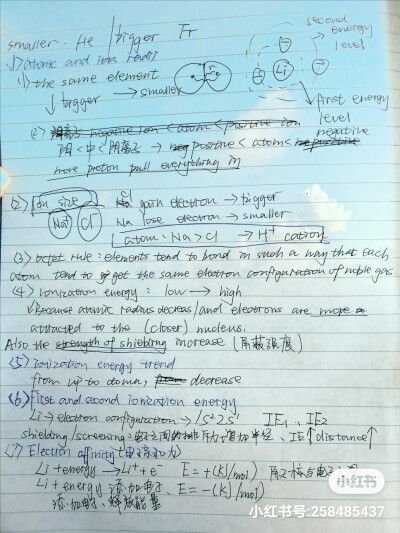 smaller. He | bigger Fr
second energy level
(1) atomic and ion radii
(1) the same element
↓ bigger → smaller
Li
first energy level
negative
(2) negative ion < atom < positive ion
阳 < 中 < 阴离子 → positive < atom <
more proton pull everything in
(2) Ion size
Na⁺ Cl⁻
Cl gain electron → bigger
Na lose electron → smaller
atom: Na > Cl → H⁺ cation
(3) octet rule: elements tend to bond in such a way that each
atom tend to get the same electron configuration of noble gas
(4) Ionization energy: low → high
Because atomic radius decreas/and electrons are more
attracted to the (closer) nucleus.
Also the strength of shielding increase (屏蔽强度)
<5> Ionization energy trend
from up to down, decrease
<6> First and second ionization energy
Li → electron configuration → 1s² 2s¹ IE₁, IE₂
shielding/screening: 电子之间的排斥力, 增加半径, IE↑ distance↑
<7> Election affinity (电子亲和力)
Li + energy → Li⁺ + e⁻ E = +(KJ/mol)
Li + energy 添加电子 E = -(KJ/mol)
添加电子, 释放能量
小红书
小红书号:258485437